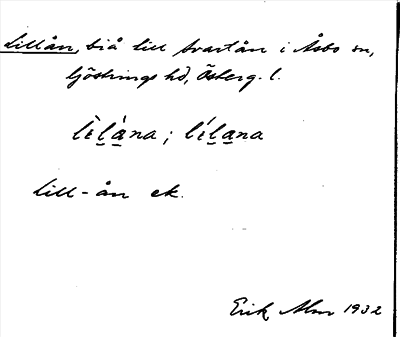 Lillån, biå till Svartån i Åsbo sn,
Göstrings hd, Österg. l.
lèl̠á̠na; lél̠a̠na
Lill-ån ek.
Erik Alm 1932